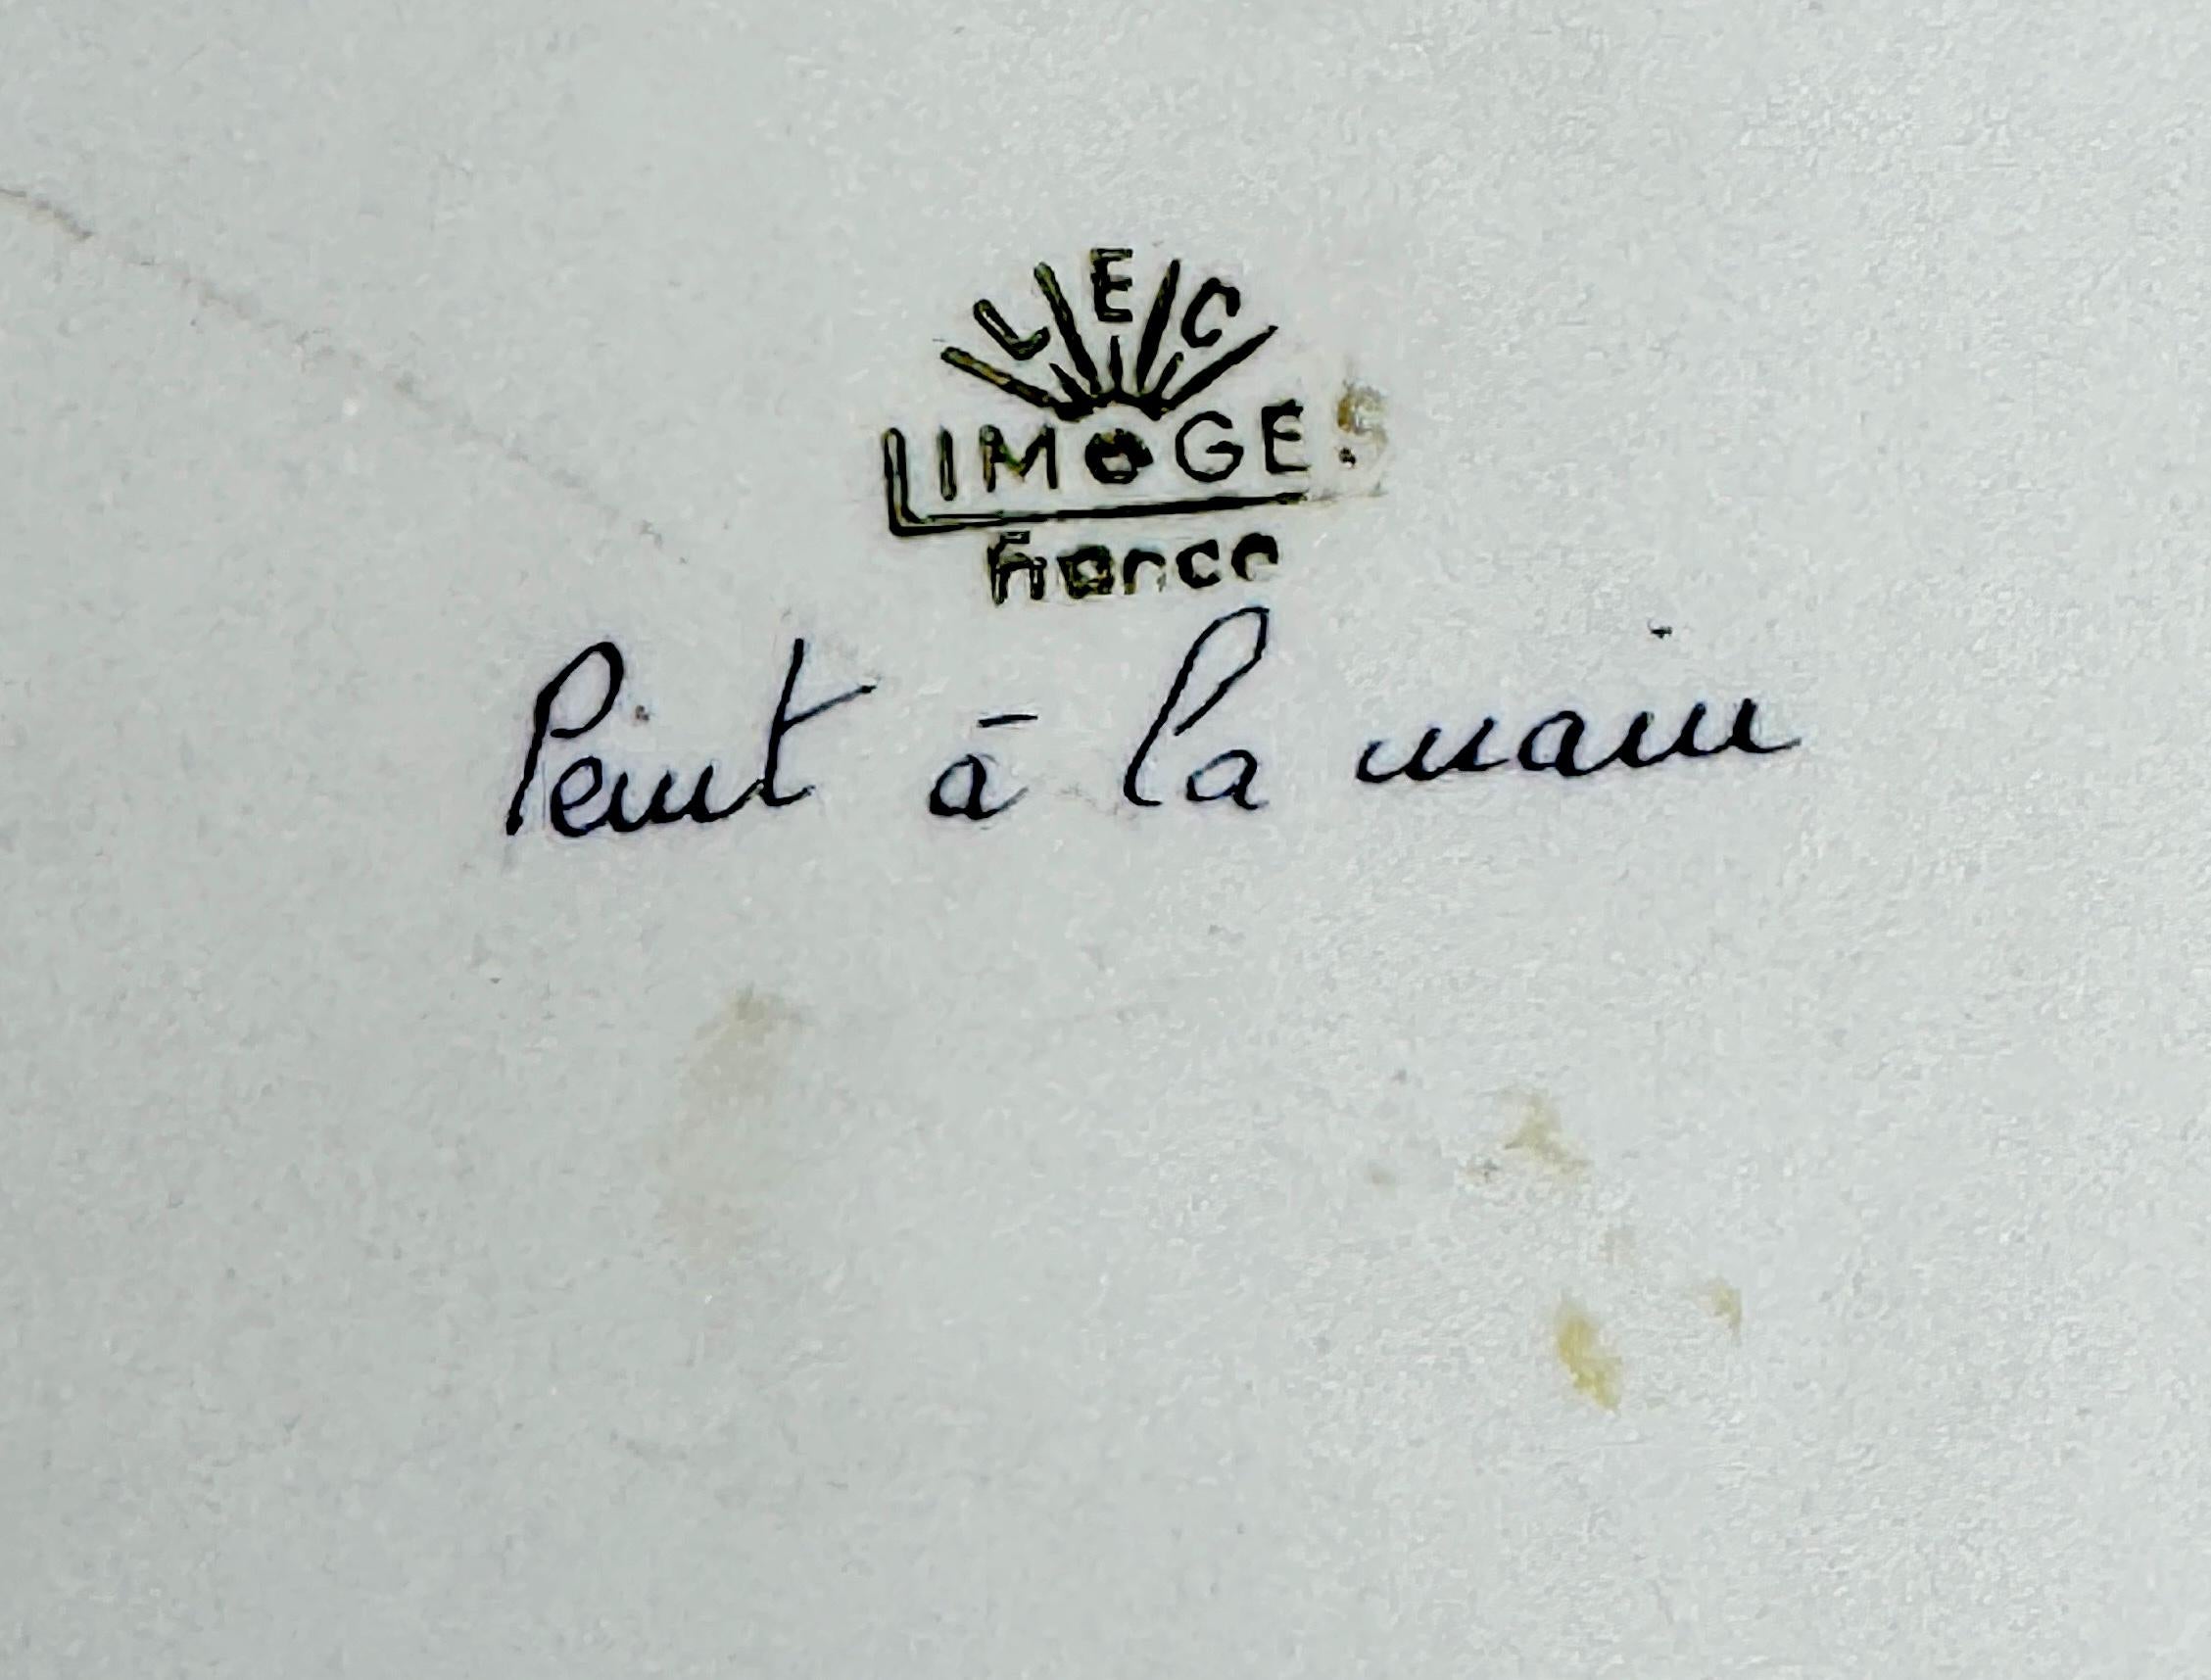 LEC
LIMOGES
France
Peint à la main